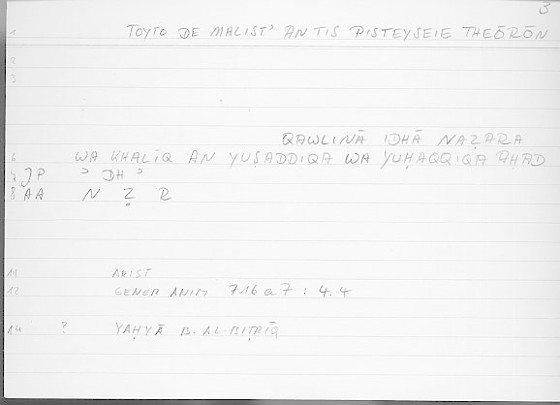 3
1 TOYTO DE MALIST' AN TIS PISTEYSEIE THEŌRŌN
2
3
QAWLINĀ IDHĀ NAẒARA
6 WA KHALĪQ AN YUṢADDIQA WA YUḤAQQIQA AḤAD
7 JP ʾ DH ʾ
8 AA N Ẓ R
11 ARIST
12 GENER ANIM 716a7 : 4.4
14 ? YAḤYĀ B. AL-BIṬRĪQ